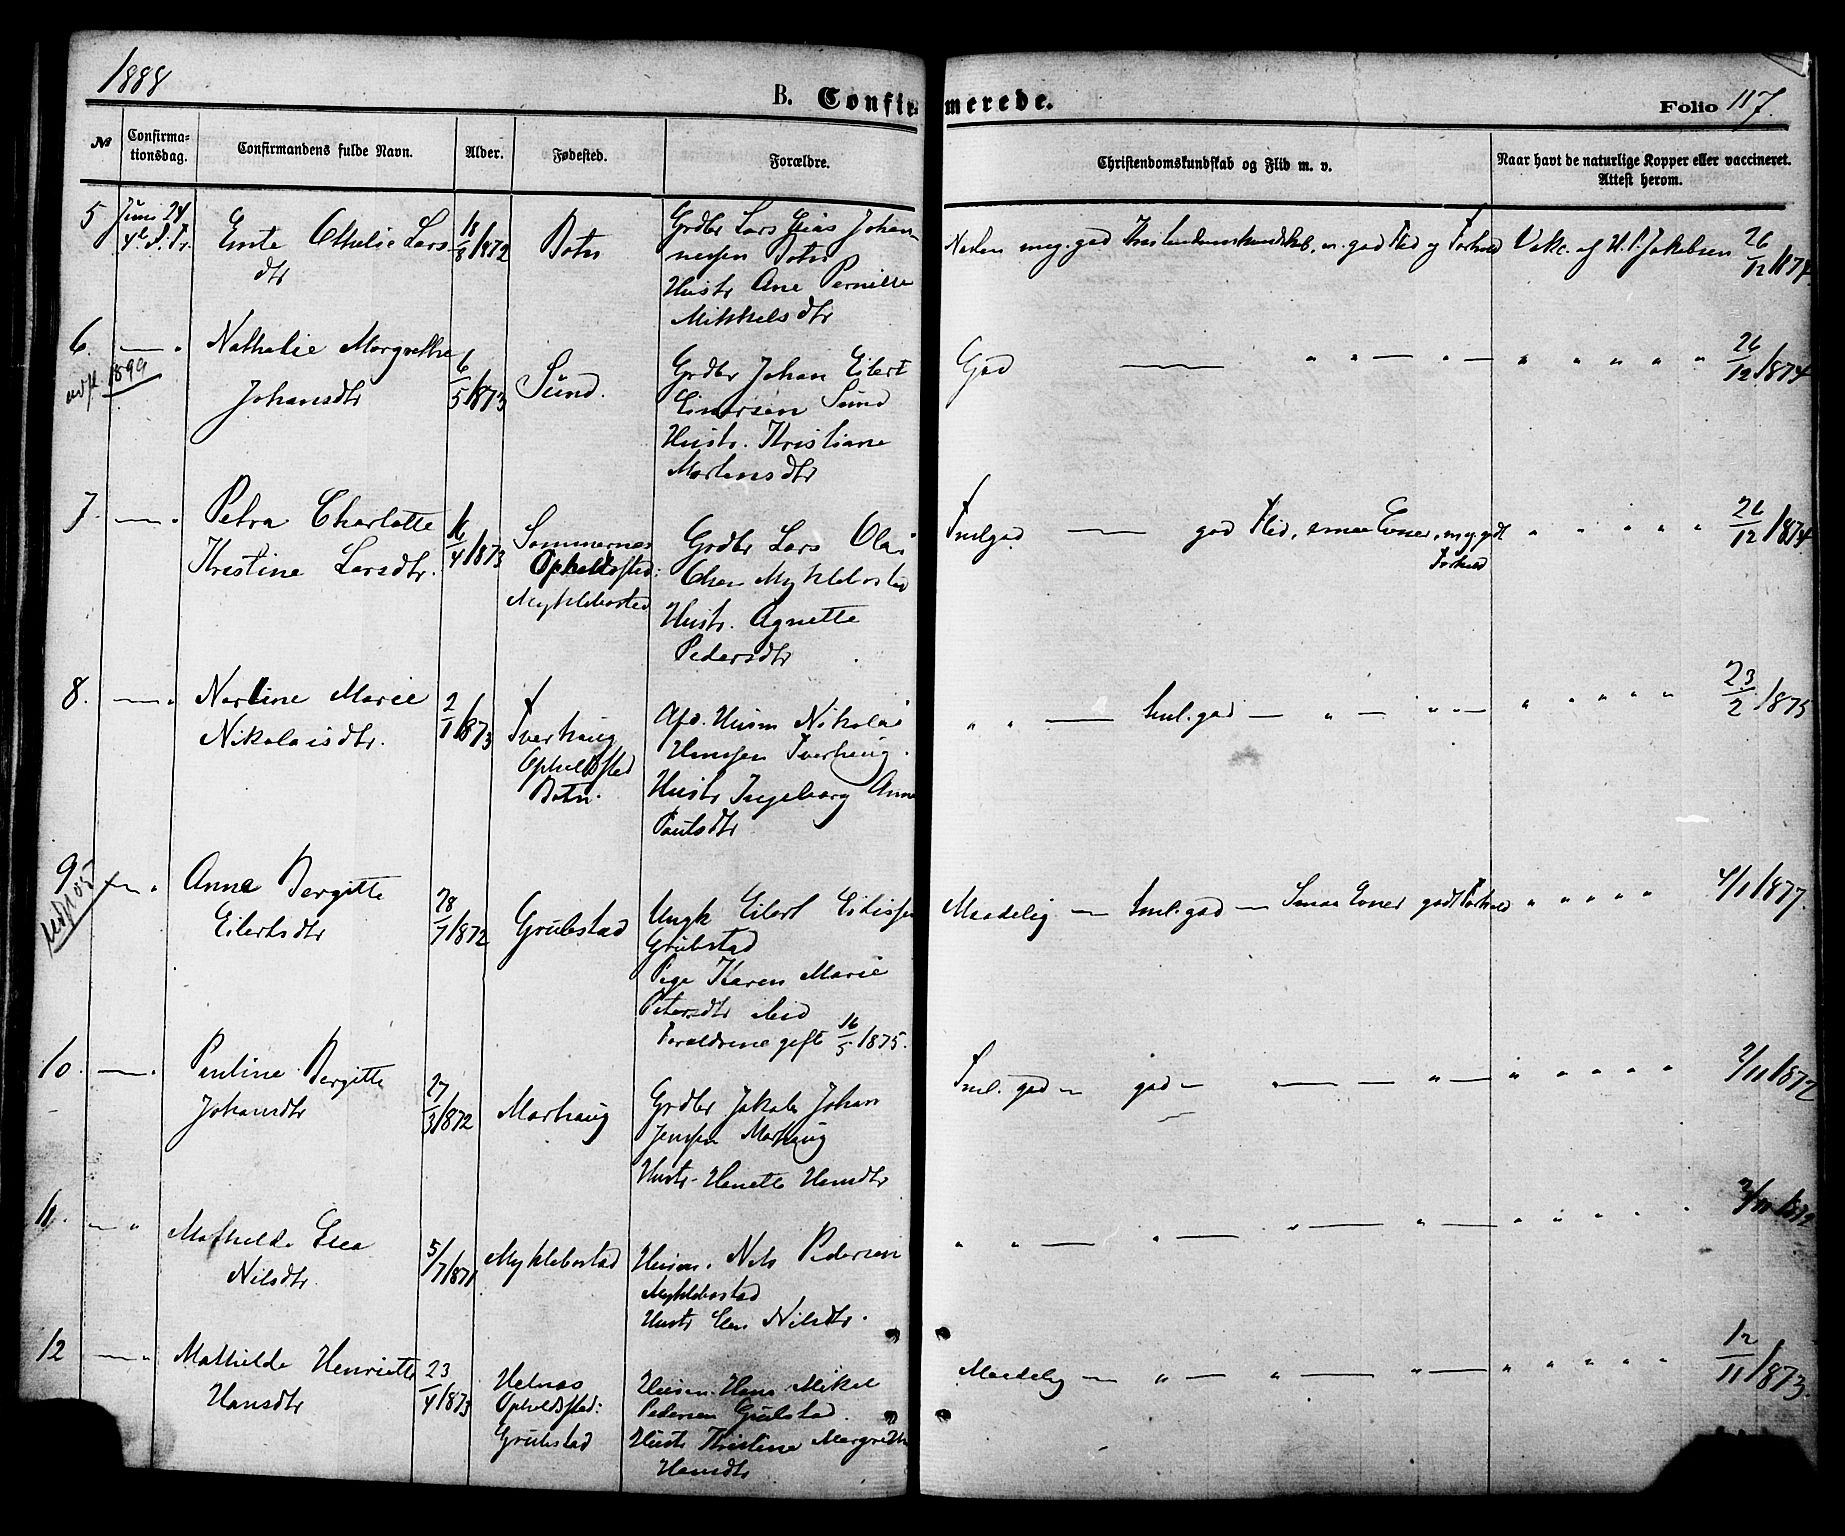 1888
B. Confir-merede.
Folio 117.
№
Confirma-tionsdag.
Confirmandens fulde Navn.
Alder.
Fødested.
Forældre.
Christendomskundskab og Flid m. v.
Naar havt de naturlige Kopper eller vaccineret. Attest herom.
5
Juni 24
4de S. Tr.
Othelie Lars
dtr
18/8 1872
Botn
Grdbr Lars Elias Johan-
nessen Botn
Hustr Ane Pernille
Mikkelsdtr
Næsten meg. god Kristendomskundskab, m. god Flid og Forhold
Vakc. af H. P. Jakobsen 26/12 1874
6.
1899
Nathalie Margrethe
Johansdtr
6/5 1873
Sund.
Grdbr Johan Eilert
Einarsen Sund
Hustr. Kristiane
Mortensdtr
God
26/12 1874
7.
Petra Charlotte
Kristine Larsdtr.
16/4 1873
Sommernæs
Opholdssted:
Myklebostad
Grdbr Lars Olai
Olsen Myklebostad
Hustr. Agnette
Pedersdtr
Tml. god
god Flid, smaa Evner, meg. godt
Forhold
26/12 1874
8.
Nartine Marie
Nikolaisdtr.
2/1 1873
Tverhaug
Opholdssted
Botn.
Afd. Husm Nikolai
Hansen Tverhaug.
Hustr Ingeborg Anna
Paulsdtr
tml. god
23/2 1875
9
Anna Bergitte
Eilertsdtr
28/7 1872
Grubstad
Ungk Eilert
Grubstad
Pige Karen Marie
Petersdtr
Forældrene gift 16/5 1875.
Maadelig
tml. god
Smaa Evner godt Forhold
4/1 1877.
10.
Pauline Bergitte
Johansdtr
27/3 1872
Marhaug
Grdbr Jakob Johan
Jensen Marhaug
Hustr. Hanette Hansdtr
Tml. god
god
2/11 1872
11.
Mathilde
Nilsdtr.
5/7 1871
Myklebostad
Husm. Nils Pedersen
Myklebostad
Hustr Nilsdtr.
2/11 1872
12
Mathilde Henriette
Hansdtr
23/4 1873
Helnæs
Opholdssted:
Grubstad
Husm. Hans Mikal
Pedersen Grubstad.
Hustr Kristine Margrethe
Hansdtr
Maadelig
12/11 1873.